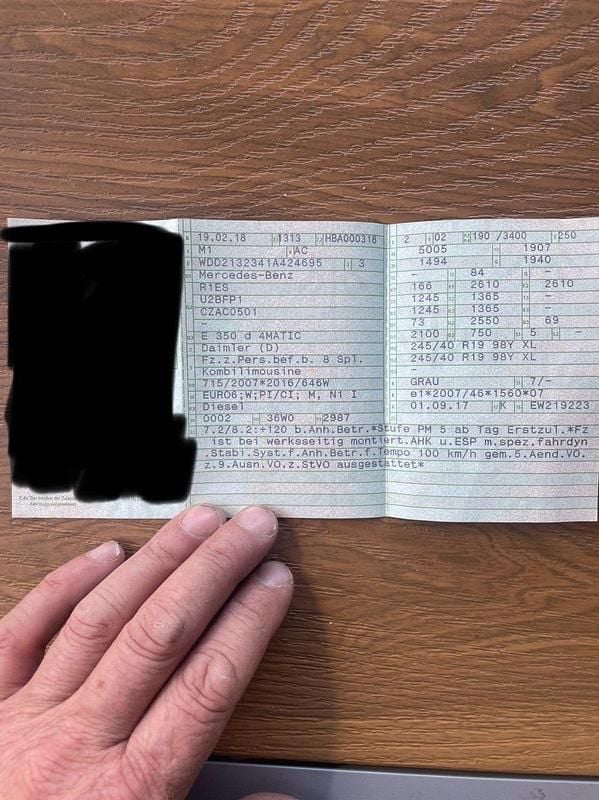 19.02.18 1313 HBA000318
M1 AC
WDD2132341A424695 3
Mercedes-Benz
R1ES
U2BFP1
CZAC0501
-
E 350 d 4MATIC
Daimler (D)
Fz.z.Pers.bef.b. 8 Spl.
Kombilimousine
715/2007*2016/646W
EURO6;W;PI/CI; M, N1 I
Diesel
0002 36W0 2987
2 02 190 /3400 250
5005 1907
1494 1940
- 84 -
166 2610 2610
1245 1365 -
1245 1365 -
73 2550 69
2100 750 5 -
245/40 R19 98Y XL
245/40 R19 98Y XL
-
GRAU 7/-
e1*2007/46*1560*07
01.09.17 K EW219223
7.2/8.2:+120 b.Anh.Betr.*Stufe PM 5 ab Tag Erstzul.*Fz
ist bei werksseitig montiert.AHK u.ESP m.spez.fahrdyn
.Stabi.Syst.f.Anh.Betr.f.Tempo 100 km/h gem.5.Aend.VO.
z.9.Ausn.VO.z.StVO ausgestattet*